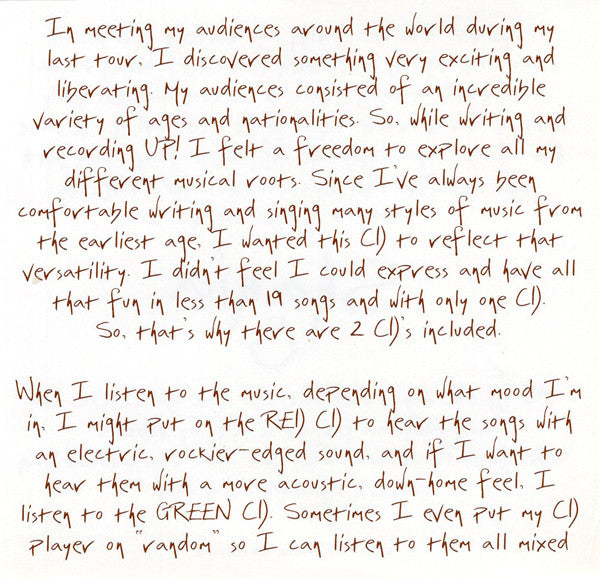 In meeting my audiences around the world during my
last tour, I discovered something very exciting and
liberating. My audiences consisted of an incredible
variety of ages and nationalities. So, while writing and
recording UP! I felt a freedom to explore all my
different musical roots. Since I've always been
comfortable writing and singing many styles of music from
the earliest age, I wanted this CD to reflect that
versatility. I didn't feel I could express and have all
that fun in less than 19 songs and with only one CD.
So, that's why there are 2 CD's included.
When I listen to the music, depending on what mood I'm
in, I might put on the RED CD to hear the songs with
an electric, rockier-edged sound, and if I want to
hear them with a more acoustic, down-home feel, I
listen to the GREEN CD. Sometimes I even put my CD
player on "random" so I can listen to them all mixed